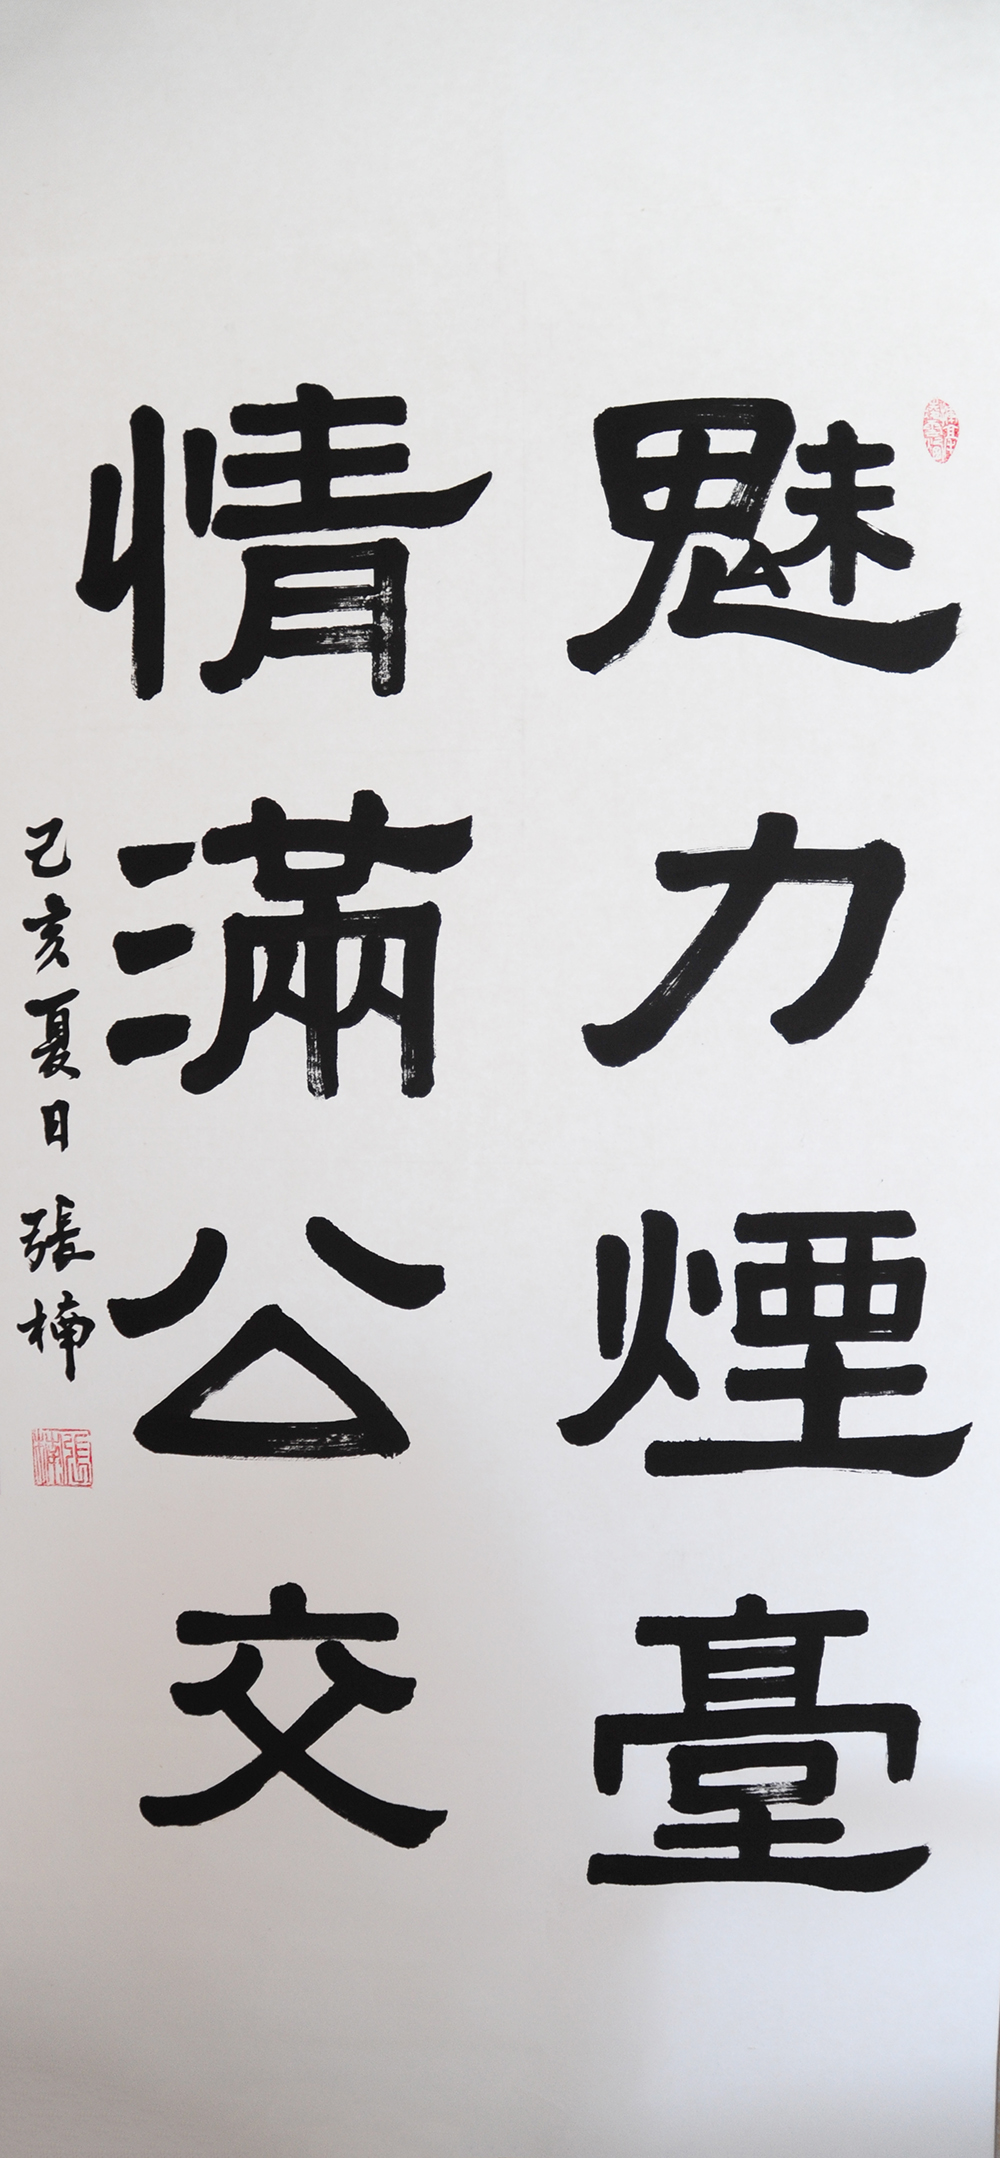 魅力煙臺
情滿公交
己亥夏日 張楠
張楠